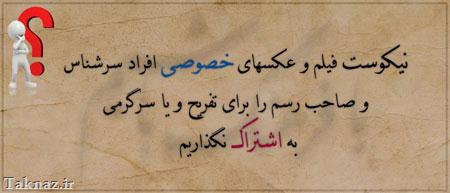 نیکوست فیلم و عکسهای خصوصی افراد سرشناس
و صاحب رسم را برای تفریح و یا سرگرمی
به اشتراک نگذاریم
Taknaz.ir